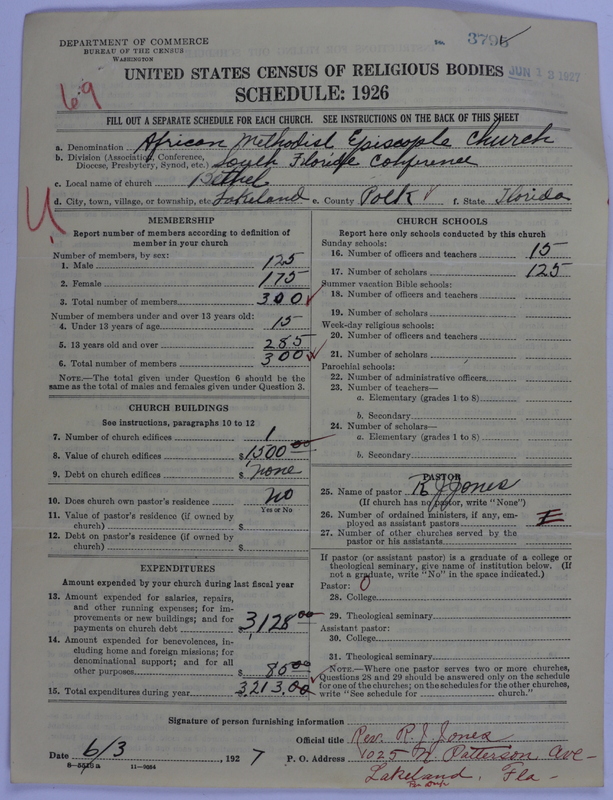 DEPARTMENT OF COMMERCE
BUREAU OF THE CENSUS
WASHINGTON
3795
69
UNITED STATES CENSUS OF RELIGIOUS BODIES
JUN 13 1927
SCHEDULE: 1926
FILL OUT A SEPARATE SCHEDULE FOR EACH CHURCH. SEE INSTRUCTIONS ON THE BACK OF THIS SHEET
a. Denomination African Methodist Episcople Church
b. Division (Association, Conference, Diocese, Presbytery, Synod, etc.) South Florida Conference
c. Local name of church Bethel
d. City, town, village, or township, etc. Lakeland e. County Polk f. State Florida
MEMBERSHIP
Report number of members according to definition of member in your church
Number of members, by sex:
1. Male 125
2. Female 175
3. Total number of members 300
Number of members under and over 13 years old:
4. Under 13 years of age 15
5. 13 years old and over 285
6. Total number of members 300
NOTE.—The total given under Question 6 should be the same as the total of males and females given under Question 3.
CHURCH BUILDINGS
See instructions, paragraphs 10 to 12
7. Number of church edifices 1
8. Value of church edifices $1500 00
9. Debt on church edifices $ none
10. Does church own pastor's residence no
Yes or No
11. Value of pastor's residence (if owned by church) $
12. Debt on pastor's residence (if owned by church) $
EXPENDITURES
Amount expended by your church during last fiscal year
13. Amount expended for salaries, repairs, and other running expenses; for improvements or new buildings; and for payments on church debt 3128 00
14. Amount expended for benevolences, including home and foreign missions; for denominational support; and for all other purposes $ 85 00
15. Total expenditures during year 3,213.00
CHURCH SCHOOLS
Report here only schools conducted by this church
Sunday schools:
16. Number of officers and teachers 15
17. Number of scholars 125
Summer vacation Bible schools:
18. Number of officers and teachers
19. Number of scholars
Week-day religious schools:
20. Number of officers and teachers
21. Number of scholars
Parochial schools:
22. Number of administrative officers
23. Number of teachers—
a. Elementary (grades 1 to 8)
b. Secondary
24. Number of scholars—
a. Elementary (grades 1 to 8)
b. Secondary
PASTOR
25. Name of pastor R J Jones
(If church has no pastor, write "None")
26. Number of ordained ministers, if any, employed as assistant pastors
27. Number of other churches served by the pastor or his assistants
If pastor (or assistant pastor) is a graduate of a college or theological seminary, give name of institution below. (If not a graduate, write "No" in the space indicated.)
Pastor: 0
28. College
29. Theological seminary
Assistant pastor:
30. College
31. Theological seminary
NOTE.—Where one pastor serves two or more churches, Questions 28 and 29 should be answered only on the schedule for one of the churches; on the schedules for the other churches, write "See schedule for church."
Signature of person furnishing information
Official title Rev. R. J. Jones
Date 6/3, 1927 P. O. Address 1025 N. Patterson Ave-
Lakeland, Fla-
11—9064